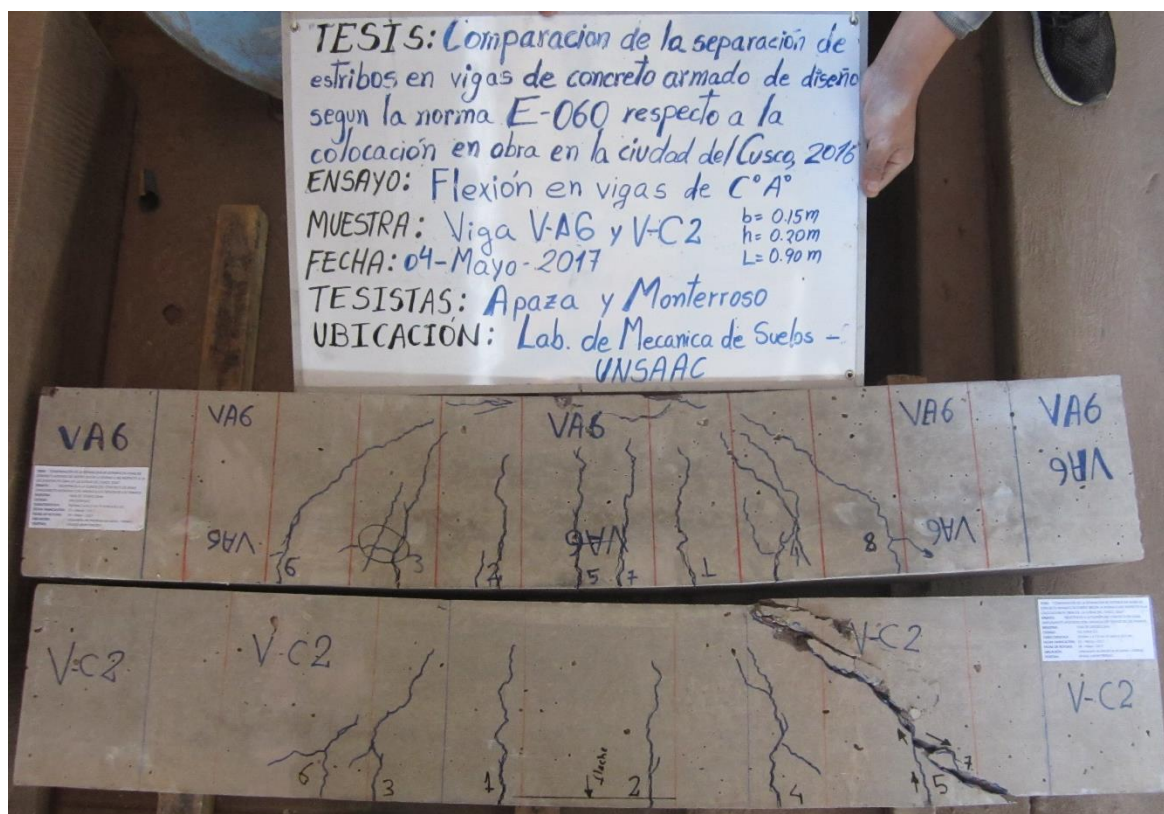 TESIS: Comparacion de la separación de
estribos en vigas de concreto armado de diseño
segun la norma E-060 respecto a la
colocación en obra en la ciudad del Cusco, 2016
ENSAYO: Flexión en vigas de C°A°
MUESTRA: Viga V-A6 y V-C2
b= 0.15m
h= 0.20m
L= 0.90m
FECHA: 04-Mayo-2017
TESISTAS: Apaza y Monterroso
UBICACIÓN: Lab. de Mecanica de Suelos -
UNSAAC
VA6
VA6
VA6
VA6
VA6
VA6
VA6
VA6
VA6
6
3
2
5
7
1
4
8
V-C2
V-C2
V-C2
V-C2
6
3
1
flecha
2
4
5
7